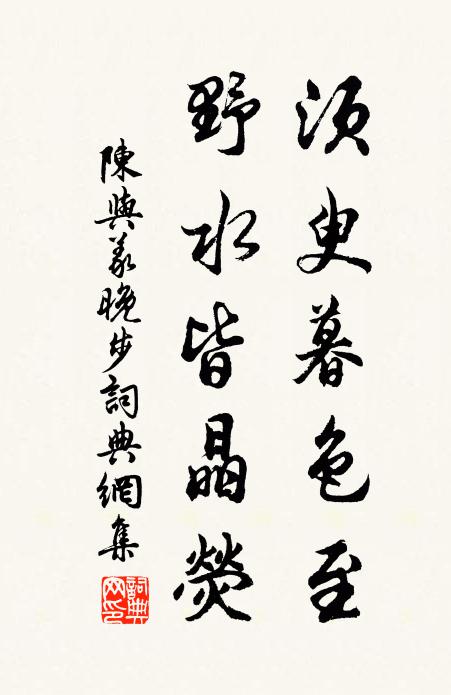 須臾暮色至
野水皆晶熒
陳與義晚步詞典網集
詞典網印